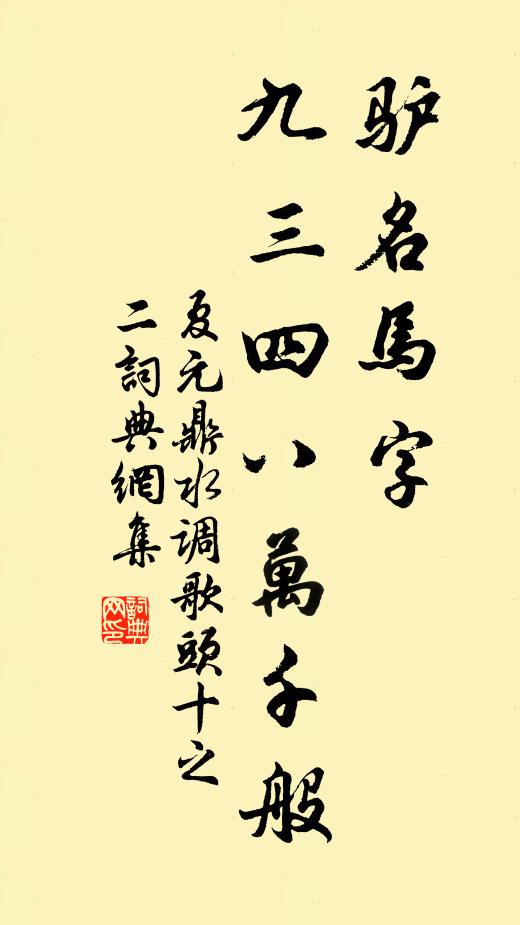 驴名馬字
九三四八萬千般
夏元鼎水调歌頭十之
二詞典網集
詞典
网印